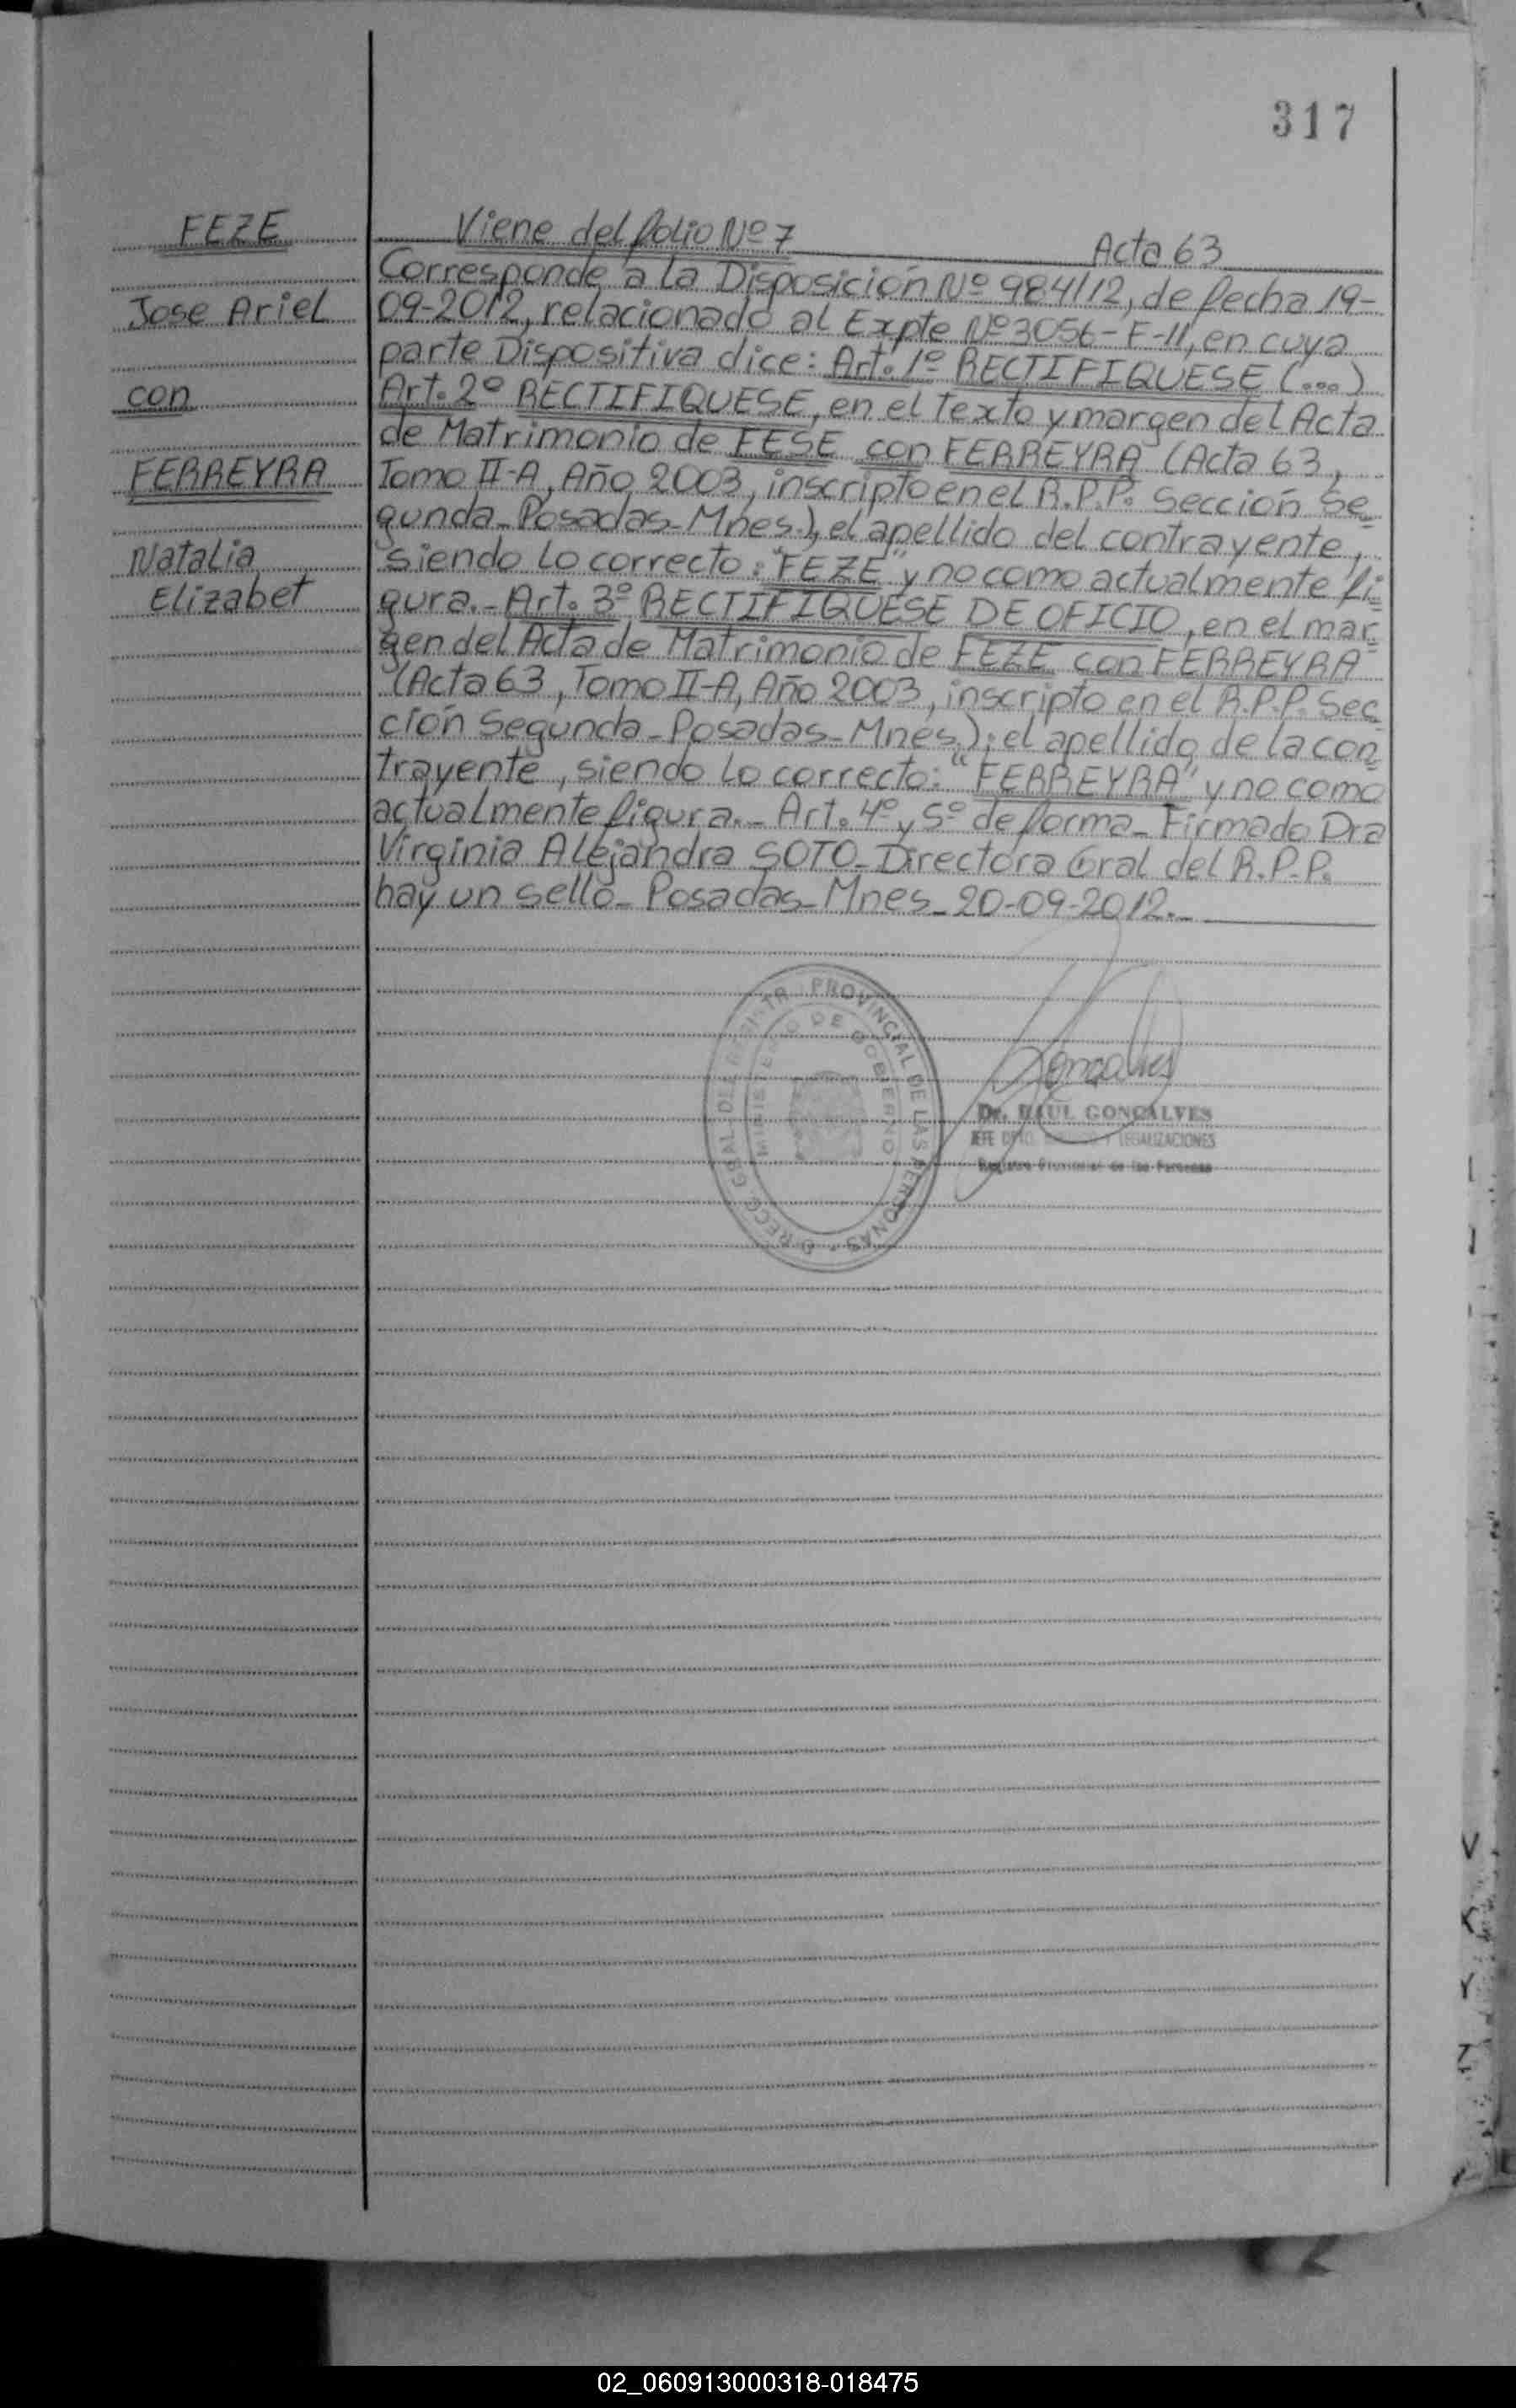 317
FEZE
Jose Ariel
con
FERREYRA
Natalia
Elizabet
Viene del folio Nº 7 Acta 63
Corresponde a la Disposición Nº 984/12, de fecha 19-
09-2012, relacionado al Expte Nº 3056-F-11, en cuya
parte Dispositiva dice: Art. 1º RECTIFIQUESE (...)
Art. 2º RECTIFIQUESE, en el texto y margen del Acta
de Matrimonio de FESE con FERREYRA (Acta 63,
Tomo II-A, Año 2003, inscripto en el R.P.P. Sección Se
gunda-Posadas-Mnes.), el apellido del contrayente,
siendo lo correcto: "FEZE" y no como actualmente fi
gura.- Art. 3º RECTIFIQUESE DE OFICIO, en el mar
gen del Acta de Matrimonio de FEZE con FERREYRA
(Acta 63, Tomo II-A, Año 2003, inscripto en el R.P.P. Sec
ción Segunda-Posadas-Mnes.); el apellido de la con
trayente, siendo lo correcto: "FERREYRA" y no como
actualmente figura.- Art. 4º y 5º de forma- Firmado Dra
Virginia Alejandra SOTO- Directora Gral del R.P.P.
hay un sello- Posadas-Mnes- 20-09-2012.-
PROVINCIAL DE LAS PERSONAS
MINISTERIO DE GOBIERNO
Goncalves
Dr. RAUL GONCALVES
JEFE DPTO. Y LEGALIZACIONES
Registro Provincial de las Personas
02_060913000318-018475